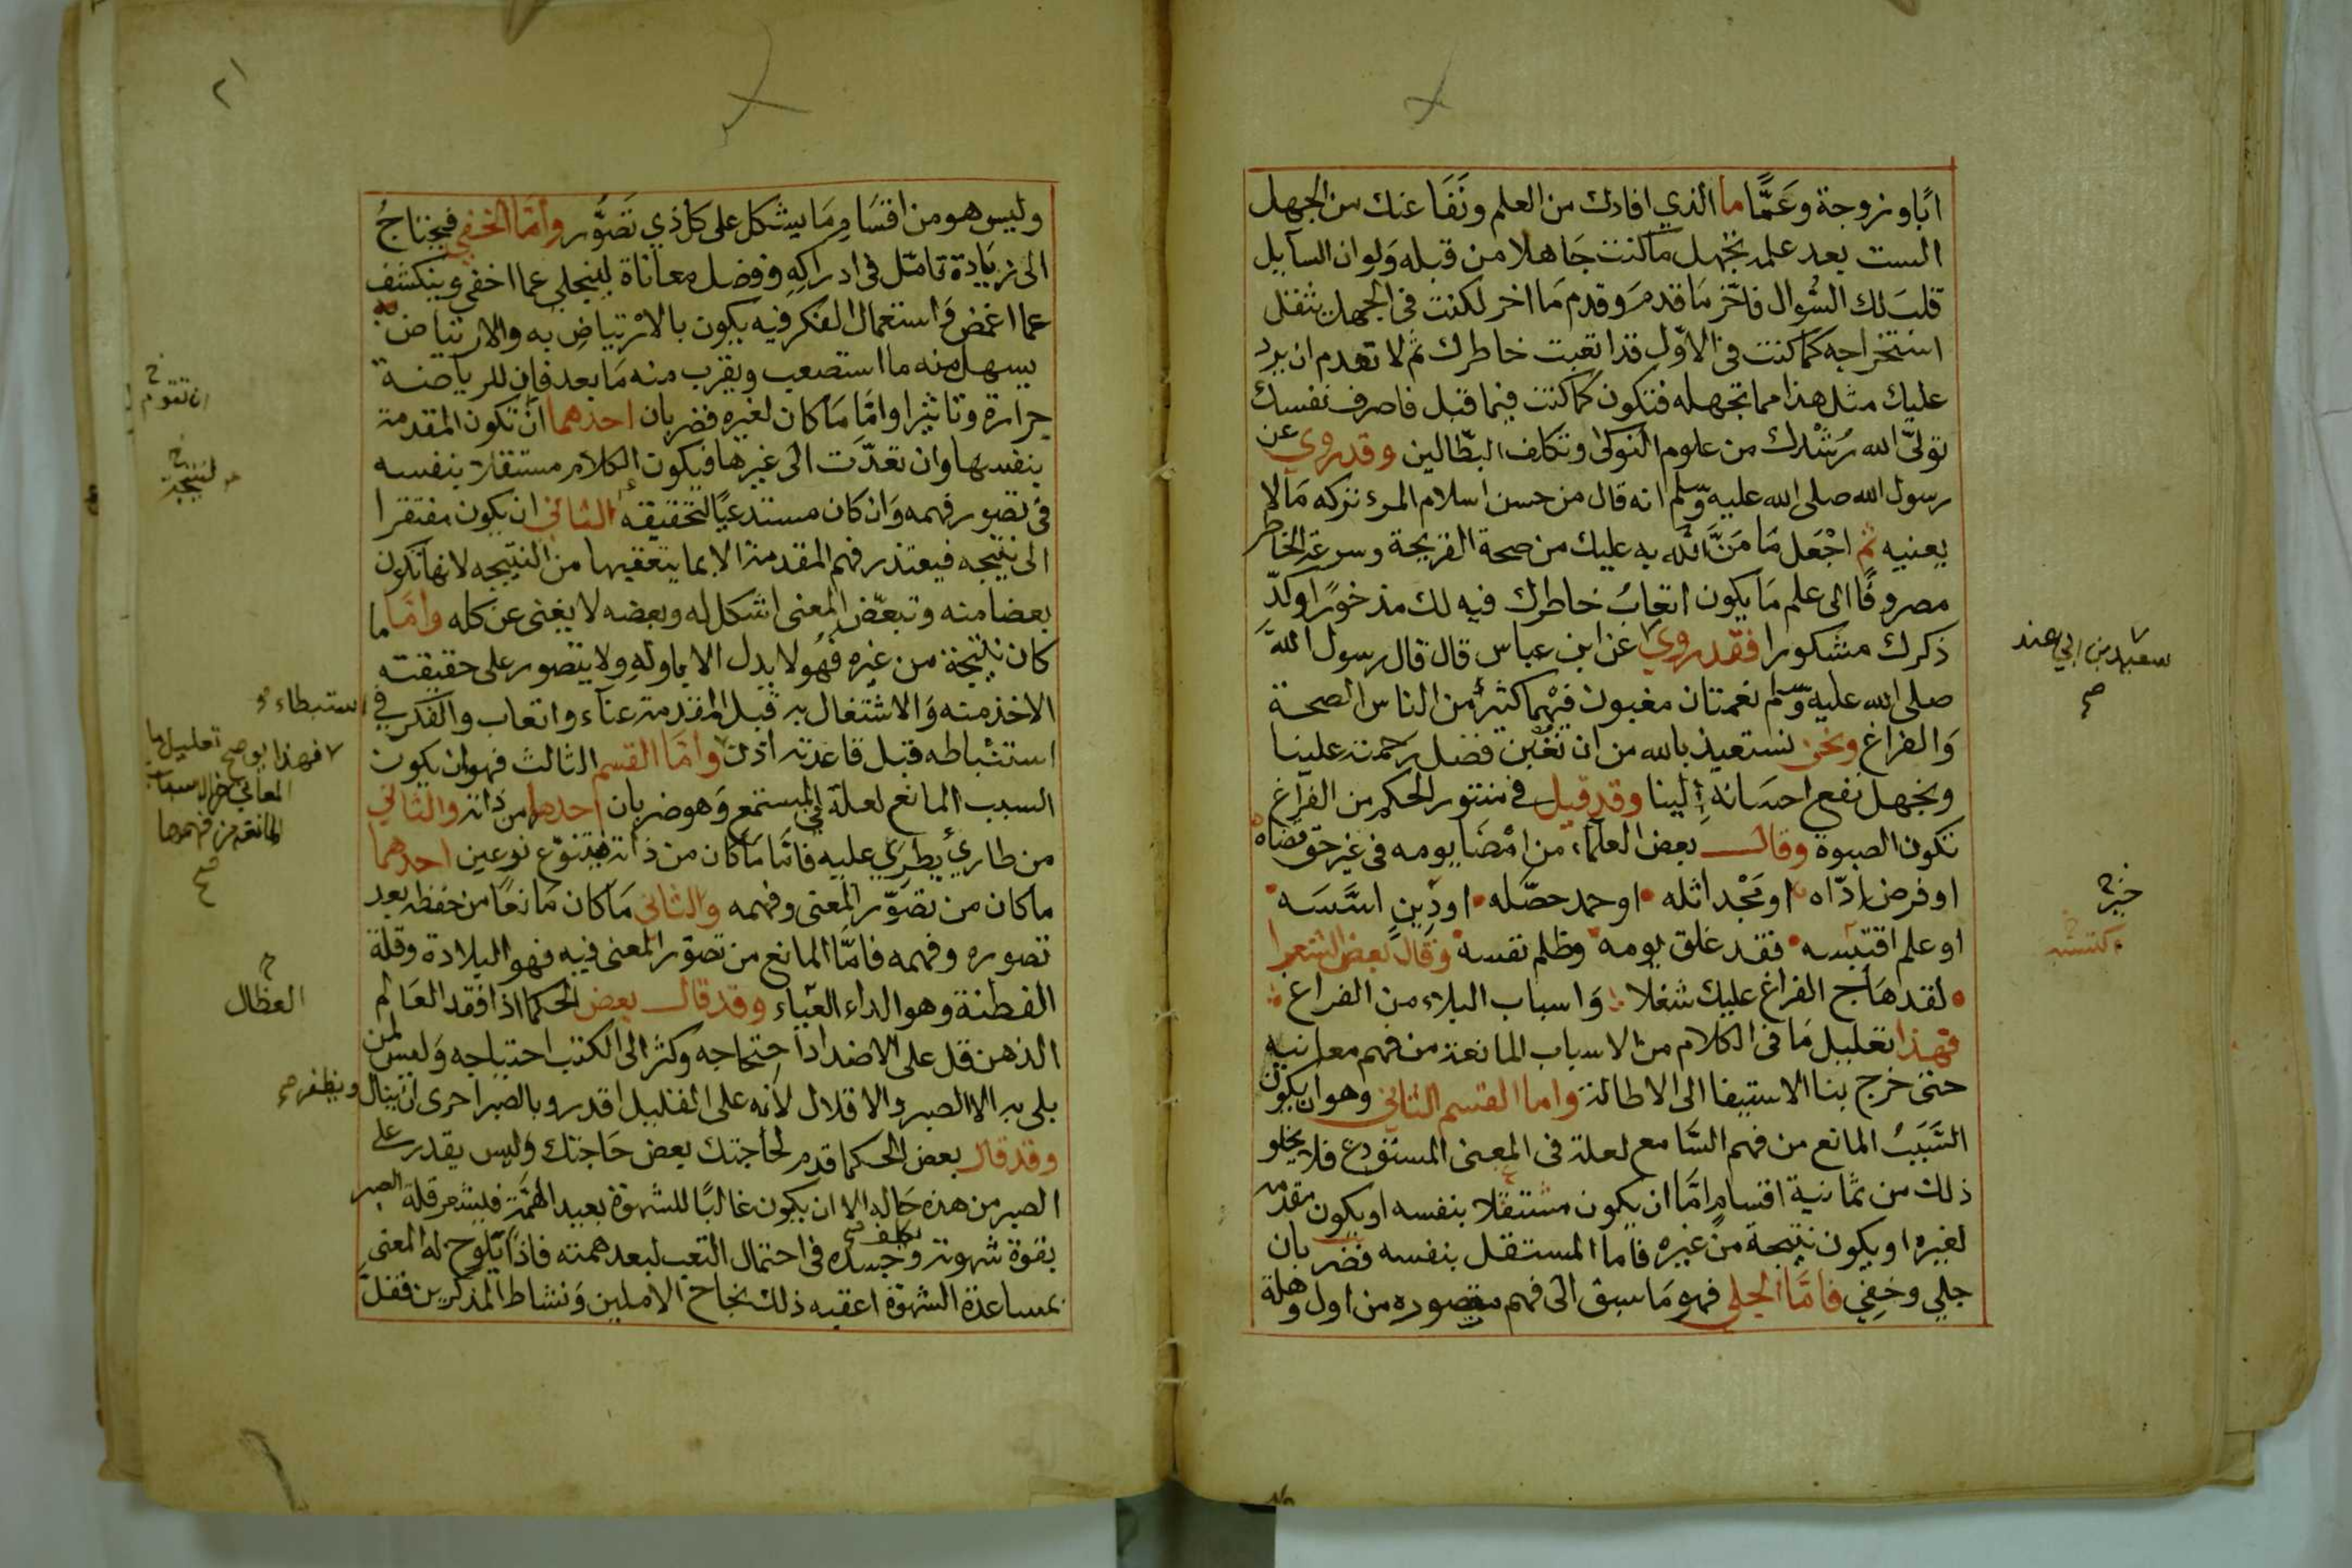 ابًا وزوجة وعَمًّا ما الذي افادك من العلم ونَفَا عنك من الجهل
الست بعد علمه تجهل ما كنت جَاهلا من قبله وَلو ان السآيل
قلبَ لك السُّوال فاخّر مَا قدمَ وقدم مَا اخر لكنت في الجهل مثقل
استخراجه كما كنت في الاوّل قد اتعبت خاطرك ثم لا تعدم ان يرد
عليك مثل هذا مما تجهله فتكون كما كنت فيما قبل فاصرف نفسك
تولىّ الله رُشْدك من علوم النوكى وتكلف البطّالين وقد روي عن
رسول الله صلى الله عليه وسلم انه قال من حسن اسلام المرء تركه مَالا
يعنيه ثم اجْعَل مَا مَنَّ الله به عليك من صحة القريحة وسرعة الخاطر
مصروفًا الى علم مَا يكون اتعابُ خاطرك فيه لك مذخورًا وكدّ
ذكرك مشكورا فقد روي عن ابن عباس قال قال رسول الله
صلى الله عليه وسلم نعمتان مغبون فيهْما كثيرٌ من الناس الصحة
وَالفراغ ونحن نستعيذ بالله من ان نغبن فضل رحمته علينا
ونجهل نفع احسَانهِ إلينا وقد قيل في منثور الحكم من الفراغ
تكون الصبوة وقال بعض العلماء من امْضَا يومه في غير حق قضاه
او فرض اذّاه او مَجْد اثله او حمد حصّله او دِينٍ اسَّسَه
او علم اقتبسه فقد غلق يومه وظلم نفسه وقال بعض الشعرا
لقد هَاج الفراغ عليك شغلا وَاسباب البلاء من الفراغ
فهذا تعليل مَا في الكلام من الاسباب المانعة من فهم معانيه
حتى خرج بنا الاستيفا الى الاطالة واما القسم الثاني وهو ان يكون
السَّبَبُ المانع من فهم السَّامع لعلة في المعنى المستودع فلا يخلو
ذلك من ثمانية اقسامٍ امَّا ان يكون مستقلا بنفسه او يكون مقدمه
لغيره او يكون نتيجة من غيره فاما المستقل بنفسه فضربان
جلي وخفي فامَّا الجلي فهو مَا سبق الى فهم متصوره من اول وهلة
سعيد بن ابي هند
صح
خير
ولَيس هو من اقسَامِ مَا يشكل على كل ذي تصَوُّر وامَّا الخفي فيحتاجُ
الى زيَادة تامّل في ادراكِهِ وفضل معاناة لينجلي عما اخفي وينكشف
عما اغمض وَاستعمال الفكر فيه يكون بالارْتياضِ به والارتياض
يسهل منه ما استصعب ويقرب منه مَا بعد فان للرياضة
جرارة وتاثيرا وامَّا مَا كان لغيره فضربان احدهما ان تكون المقدمة
بنفسها وان تعدّت الى غيرها فيكون الكلام مستقلا بنفسه
في تصور فهمه وَان كان مستدعيًا لتحقيقه الثاني ان يكون مفتقرا
الى نتيجه فيعتذر فهم المقدمة الا بما يتعقبها من النتيجه لانها تكون
بعضا منه وتبعّض المعنى اشكل له وبعضه لا يغني عن كله وامَّا ما
كان نتيجة من غيره فَهُو لا يدل الا باولهِ ولا يتصور على حقيقته
الاخذ منه وَالاشتغال به قبل المقدمة عنآء واتعاب والفكر في
استنباطه قبل قاعدته اذى وامَّا القسم الثالث فهو ان يكون
السبب المانع لعلة في المستمع وَهو ضربان احدهما من ذاته والثاني
من طاريٍ يطرَي عليه فامَّا مَا كان من ذاته فيتنوّع نوعين احدهما
ما كان من تصَوّر المعنى وفهمه والثاني مَا كان مَانعًا من حفظه بعد
تصوره وفهمه فامَّا المانع من تصوّر المعنى فيه فهو البلادة وقلة
الفطنة وهو الداء العيَاء وقد قال بعض الحكما اذا فقد العَالم
الذهن قل على الاضداد احتجاجه وكثر الى الكتب احتياجه وَليس لمن
بلي به الا الصبر والاقلال لانه على القليل اقدر وبالصبر احرى ان ينال ويظفر صح
وقد قال بعض الحكما قدم لحَاجتك بعض حَاجتك وَليس يقدر على
الصبر من هذه حَاله الا ان يكون غالبًا للشهوة بعيد الهمَّة فيشعر قلة الصبر
بقوة شهوته وَجسده في احتمال التعب لبعد همته فاذا تلوح له المعنى
بمساعدة الشهوة اعقبه ذلك نجاح الاملين وَنشاط المذكرين فقلَّ
ان تقوم
لنتيجة
استبطاء
فهذا يوضح تعليل ما
المعاني من الاسباب
المانعة من فهمها
صح
العظال
تكلف